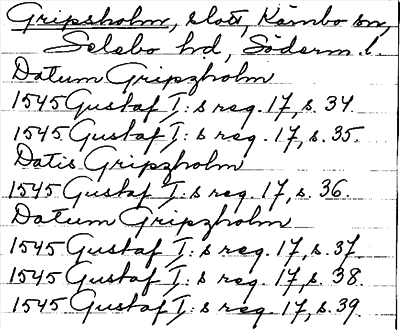 Gripsholm, slott, Kärnbo sn,
Selebo hd, Söderm. l.
Datum Gripzholm
1545 Gustaf I:s reg. 17, s. 34.
1545 Gustaf I:s reg. 17, s. 35.
Datis Gripzholm
1545 Gustaf I:s reg. 17, s. 36.
Datum Gripzholm
1545 Gustaf I:s reg. 17, s. 37.
1545 Gustaf I:s reg. 17, s. 38.
1545 Gustaf I:s reg. 17, s. 39.